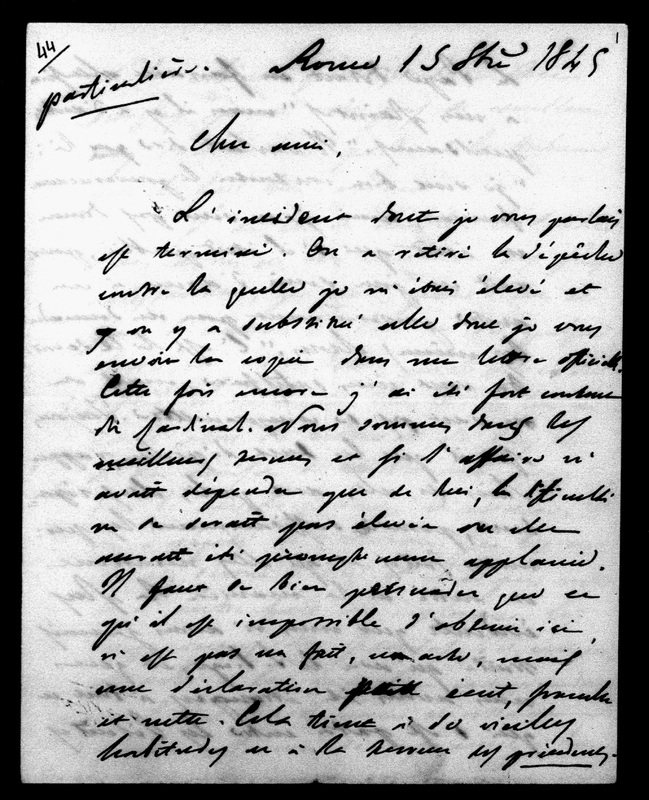 44
particulière. Rome 15 8bre 1845
Cher ami,
L'incident dont je vous parlais
est terminé. On a retiré la dépêche
contre laquelle je m'étais élevé et
on y a substitué celle dont je vous
envoie la copie dans ma lettre officielle.
Cette fois encore j'ai été fort content
du Cardinal. Nous sommes dans les
meilleurs termes et si l'affaire n'
avait dépendu que de lui, la difficulté
ne se serait pas élevée ou elle
aurait été promptement applanie.
Il faut se bien persuader que ce
qu'il est impossible d'obtenir ici,
n'est pas un fait, un acte, mais
une déclaration écrite, franche
et nette. Cela tient à de vieilles
habitudes et à la terreur des précédents.